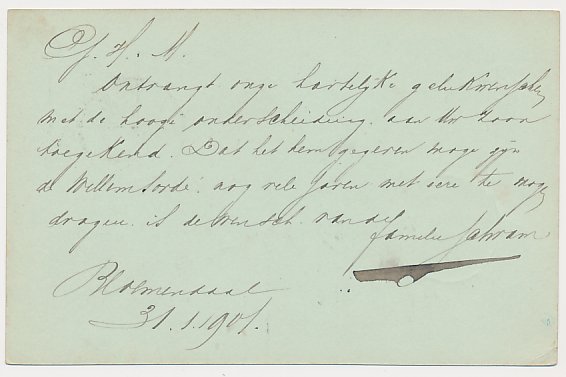 G. H. M.
Ontvangt onze hartelyke gelukwenschen
met de hooge onderscheiding aan Uw zoon
toegekend. Dat het hem gegeven moge zyn
de Willemsorde nog vele jaren met eere te mogen
dragen is de wensch van de
familie
Bloemendaal
31.1.1901.